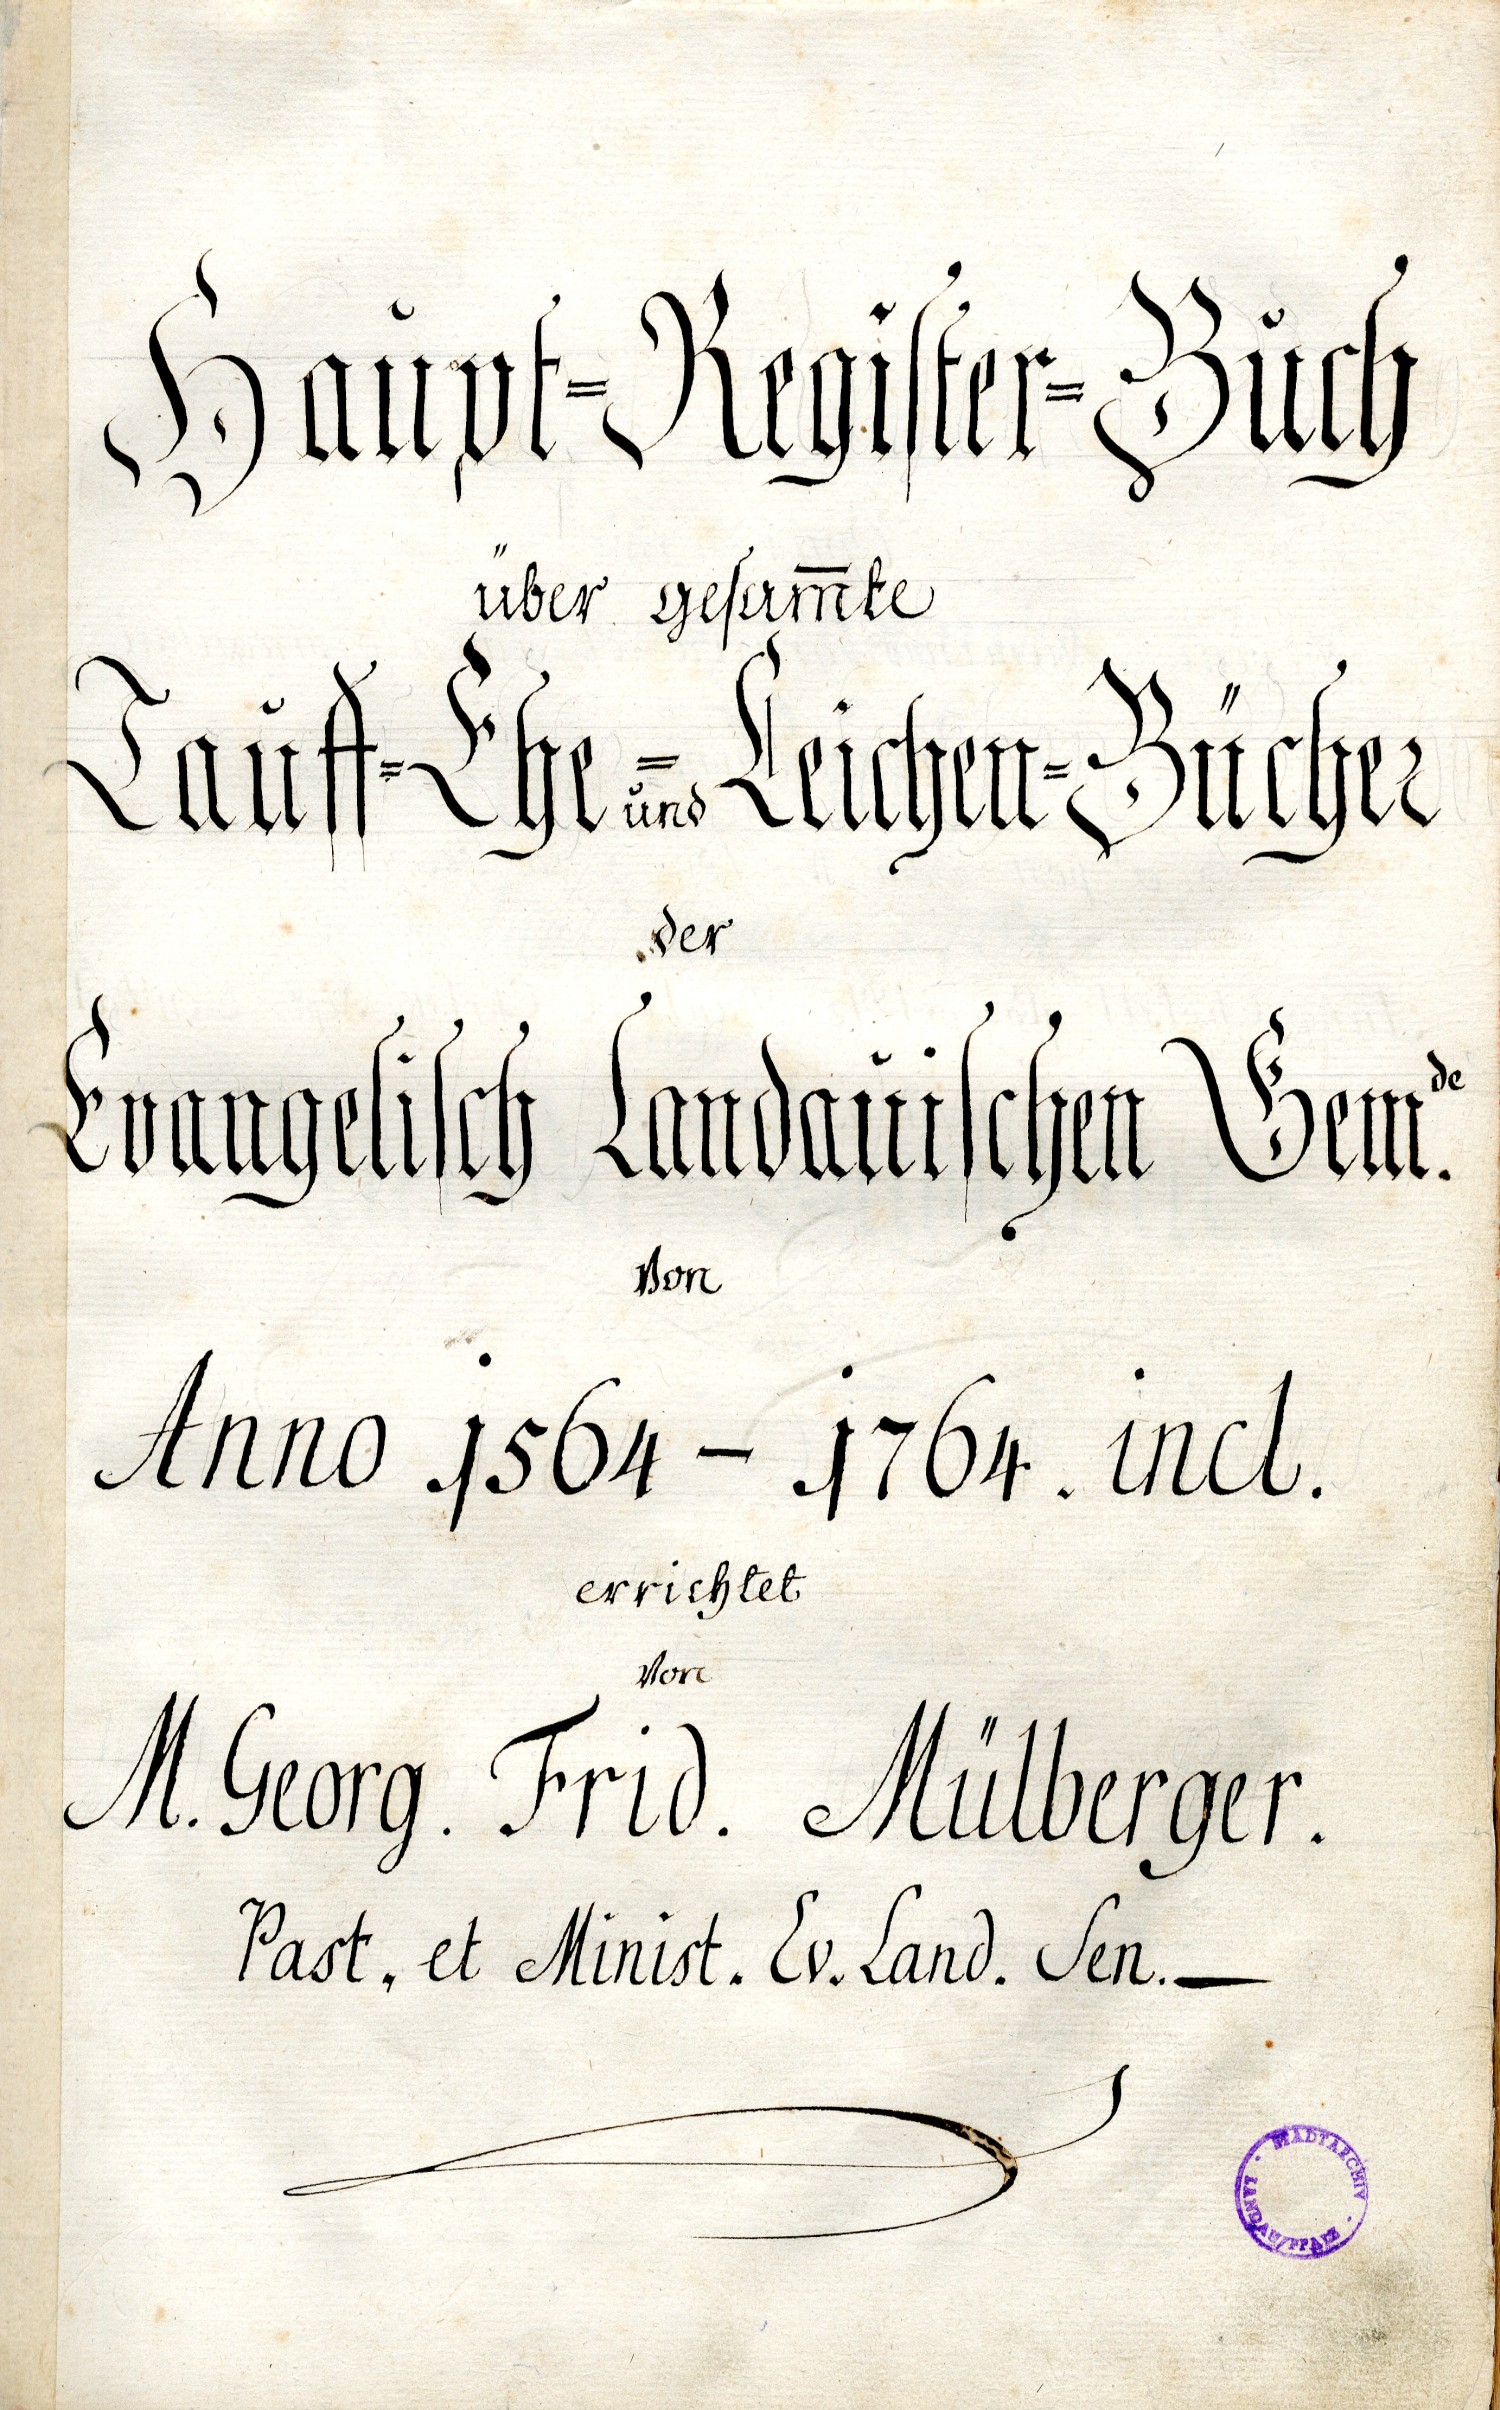 Haupt=Register=Buch
über gesam̅te
Tauff=Ehe= und Leichen=Bücher
der
Evangelisch Landauischen Gem.de
Von
Anno 1564 – 1764. incl.
errichtet
Von
M. Georg. Frid. Mülberger.
Past. et Minist. Ev. Land. Sen.—
STADTARCHIV · LANDAU/PFALZ ·